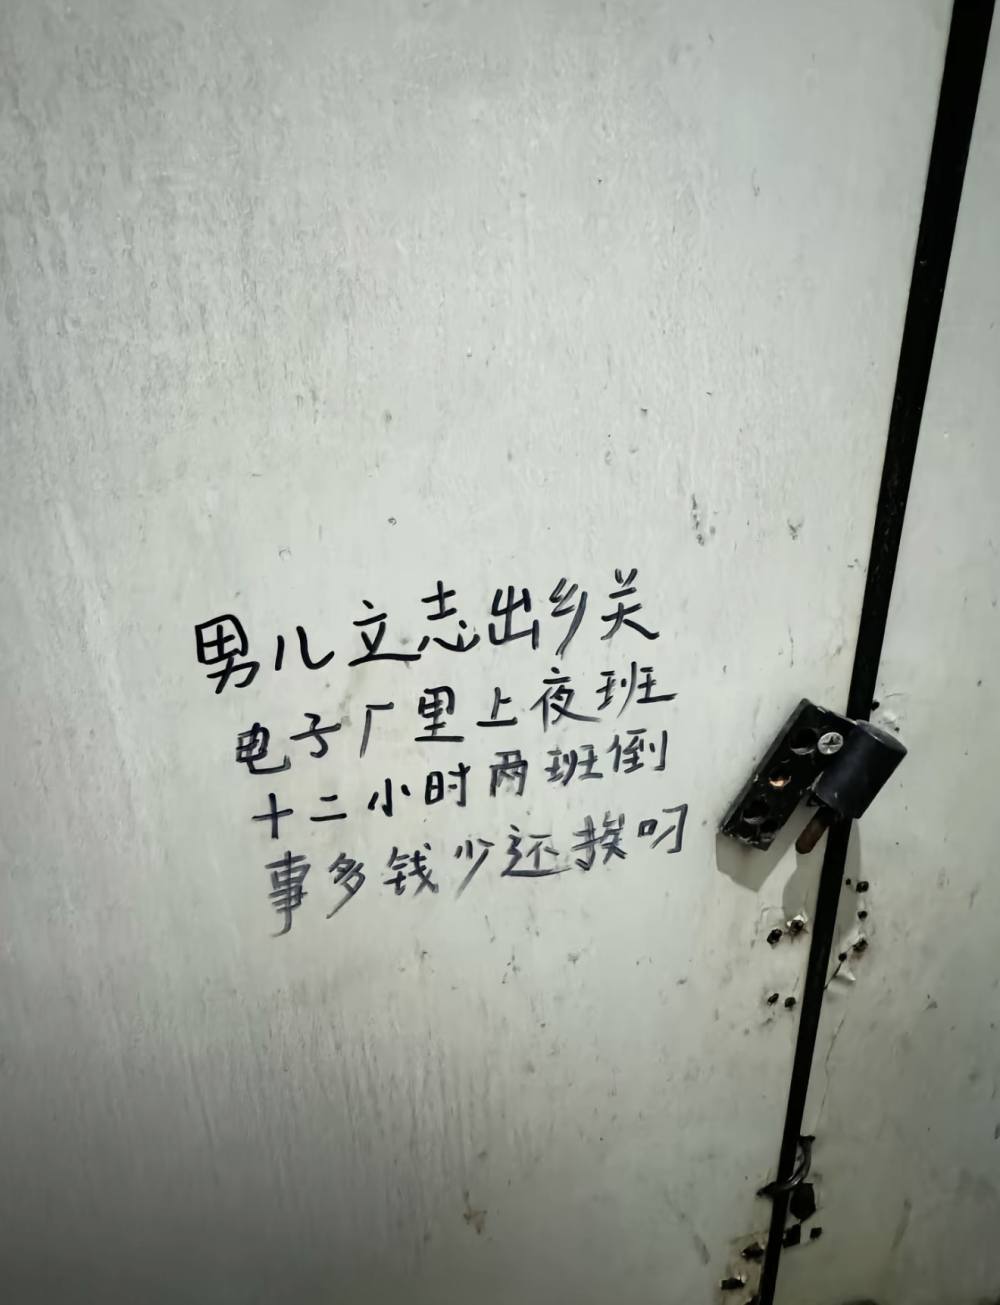 男儿立志出乡关
电子厂里上夜班
十二小时两班倒
事多钱少还挨叼